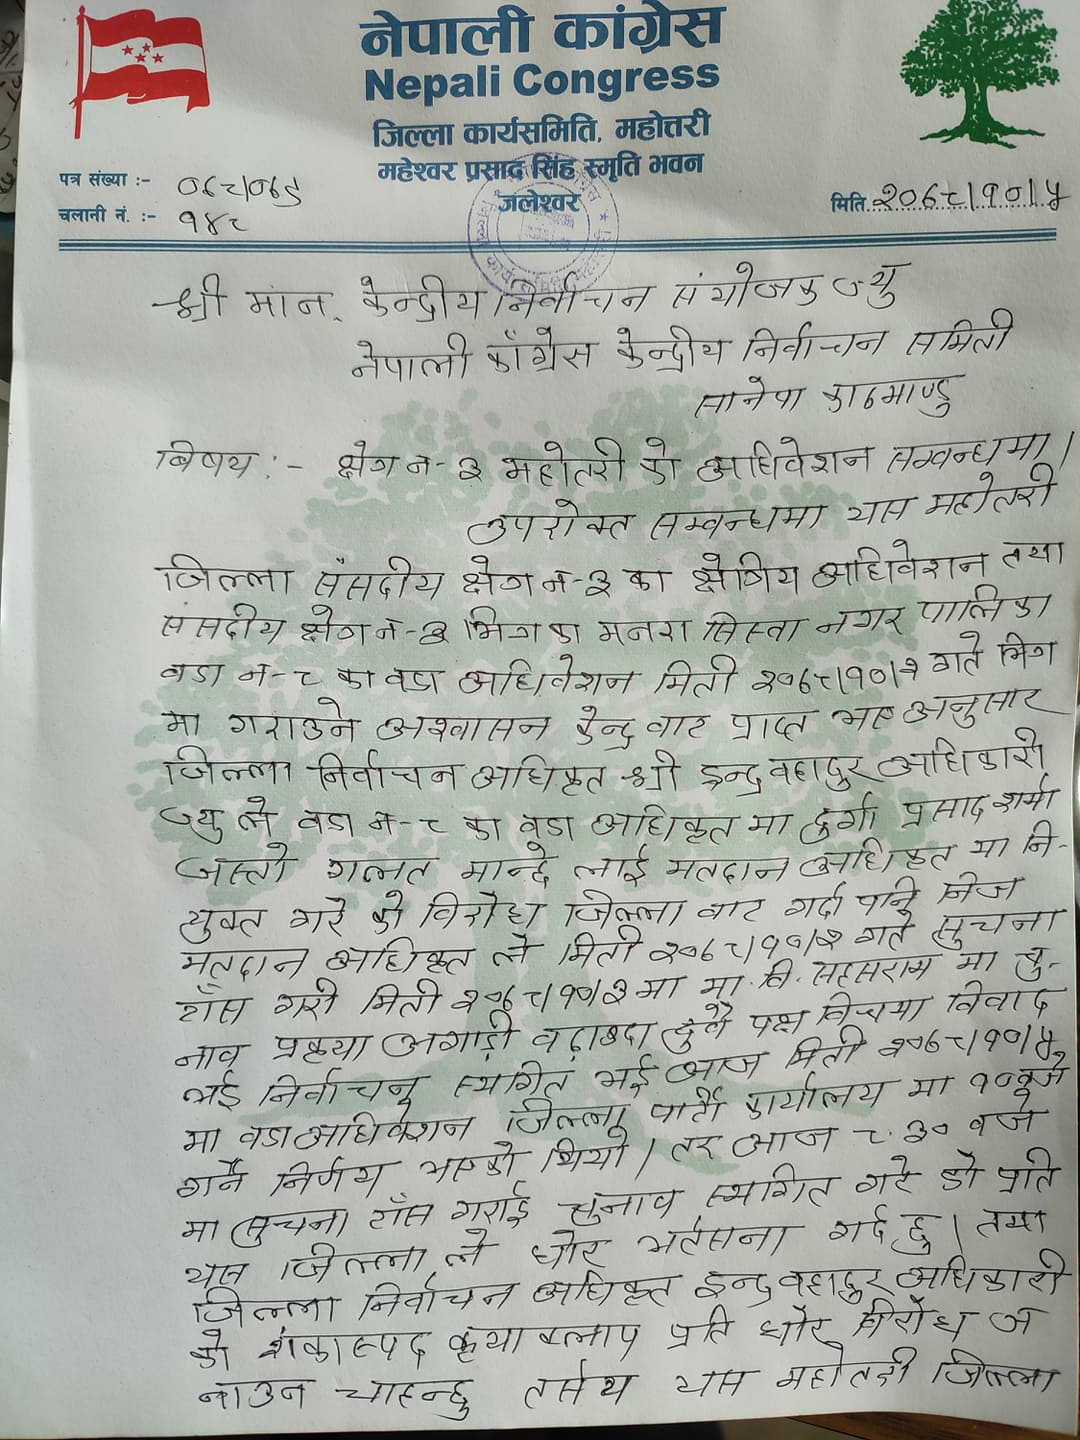 नेपाली कांग्रेस
Nepali Congress
जिल्ला कार्यसमिति, महोत्तरी
महेश्वर प्रसाद सिंह स्मृति भवन
जलेश्वर
पत्र संख्या :- ०७८/०७९
चलानी नं. :- १४८
मिति २०७८/१०/५
श्री मान् केन्द्रीय निर्वाचन संयोजक ज्यु
नेपाली काँग्रेस केन्द्रीय निर्वाचन समिती
सानेपा काठमाण्डु
बिषय :- क्षेत्र न-३ महोतरी को अधिवेशन सम्वन्धमा।
उपरोक्त सम्वन्धमा यस महोतरी
जिल्ला संसदीय क्षेत्र न-३ का क्षेत्रिय अधिवेशन तथा
संसदीय क्षेत्र न-३ भित्रका मनरा सिस्वा नगर पालिका
वडा न-८ का वडा अधिवेशन मिती २०७८/१०/२ गते भित्र
मा गराउने अश्वासन केन्द्र वाट प्राप्त भए अनुसार
जिल्ला निर्वाचन अधिकृत श्री इन्द्रवहादुर अधिकारी
ज्यु ले वडा न-८ का वडा अधिकृत मा दुर्गा प्रसाद शर्मा
जस्तो गलत मान्छे लाई मतदान अधिकृत मा नि-
युक्त गरे को विरोध जिल्ला वाट गर्दा पनि निज
मतदान अधिकृत ले मिती २०७८/१०/२ गते सुचना
टाँस गरी मिती २०७८/१०/३ मा मा. वि. सहसराम मा चु-
नाव प्रक्रया अगाडी वढाउदा दुवै पक्ष विचमा विवाद
भई निर्वाचन स्थगित भई आज मिती २०७८/१०/५
मा वडा अधिवेशन जिल्ला पार्टी कार्यालय मा १० वजे
गर्ने निर्णय भएको थियो। तर आज ८:३० वजे
मा सुचना टाँस गराई चुनाव स्थगित गरे को प्रति
यस जिल्ला ले घोर भर्तसना गर्द छु। तथा
जिल्ला निर्वाचन अधिकृत इन्द्रवहादुर अधिकारी
को शंकास्पद कृया कलाप प्रति घोर विरोध ज
नाउन चाहन्छु तर्सथ यस महोतरी जिल्ला